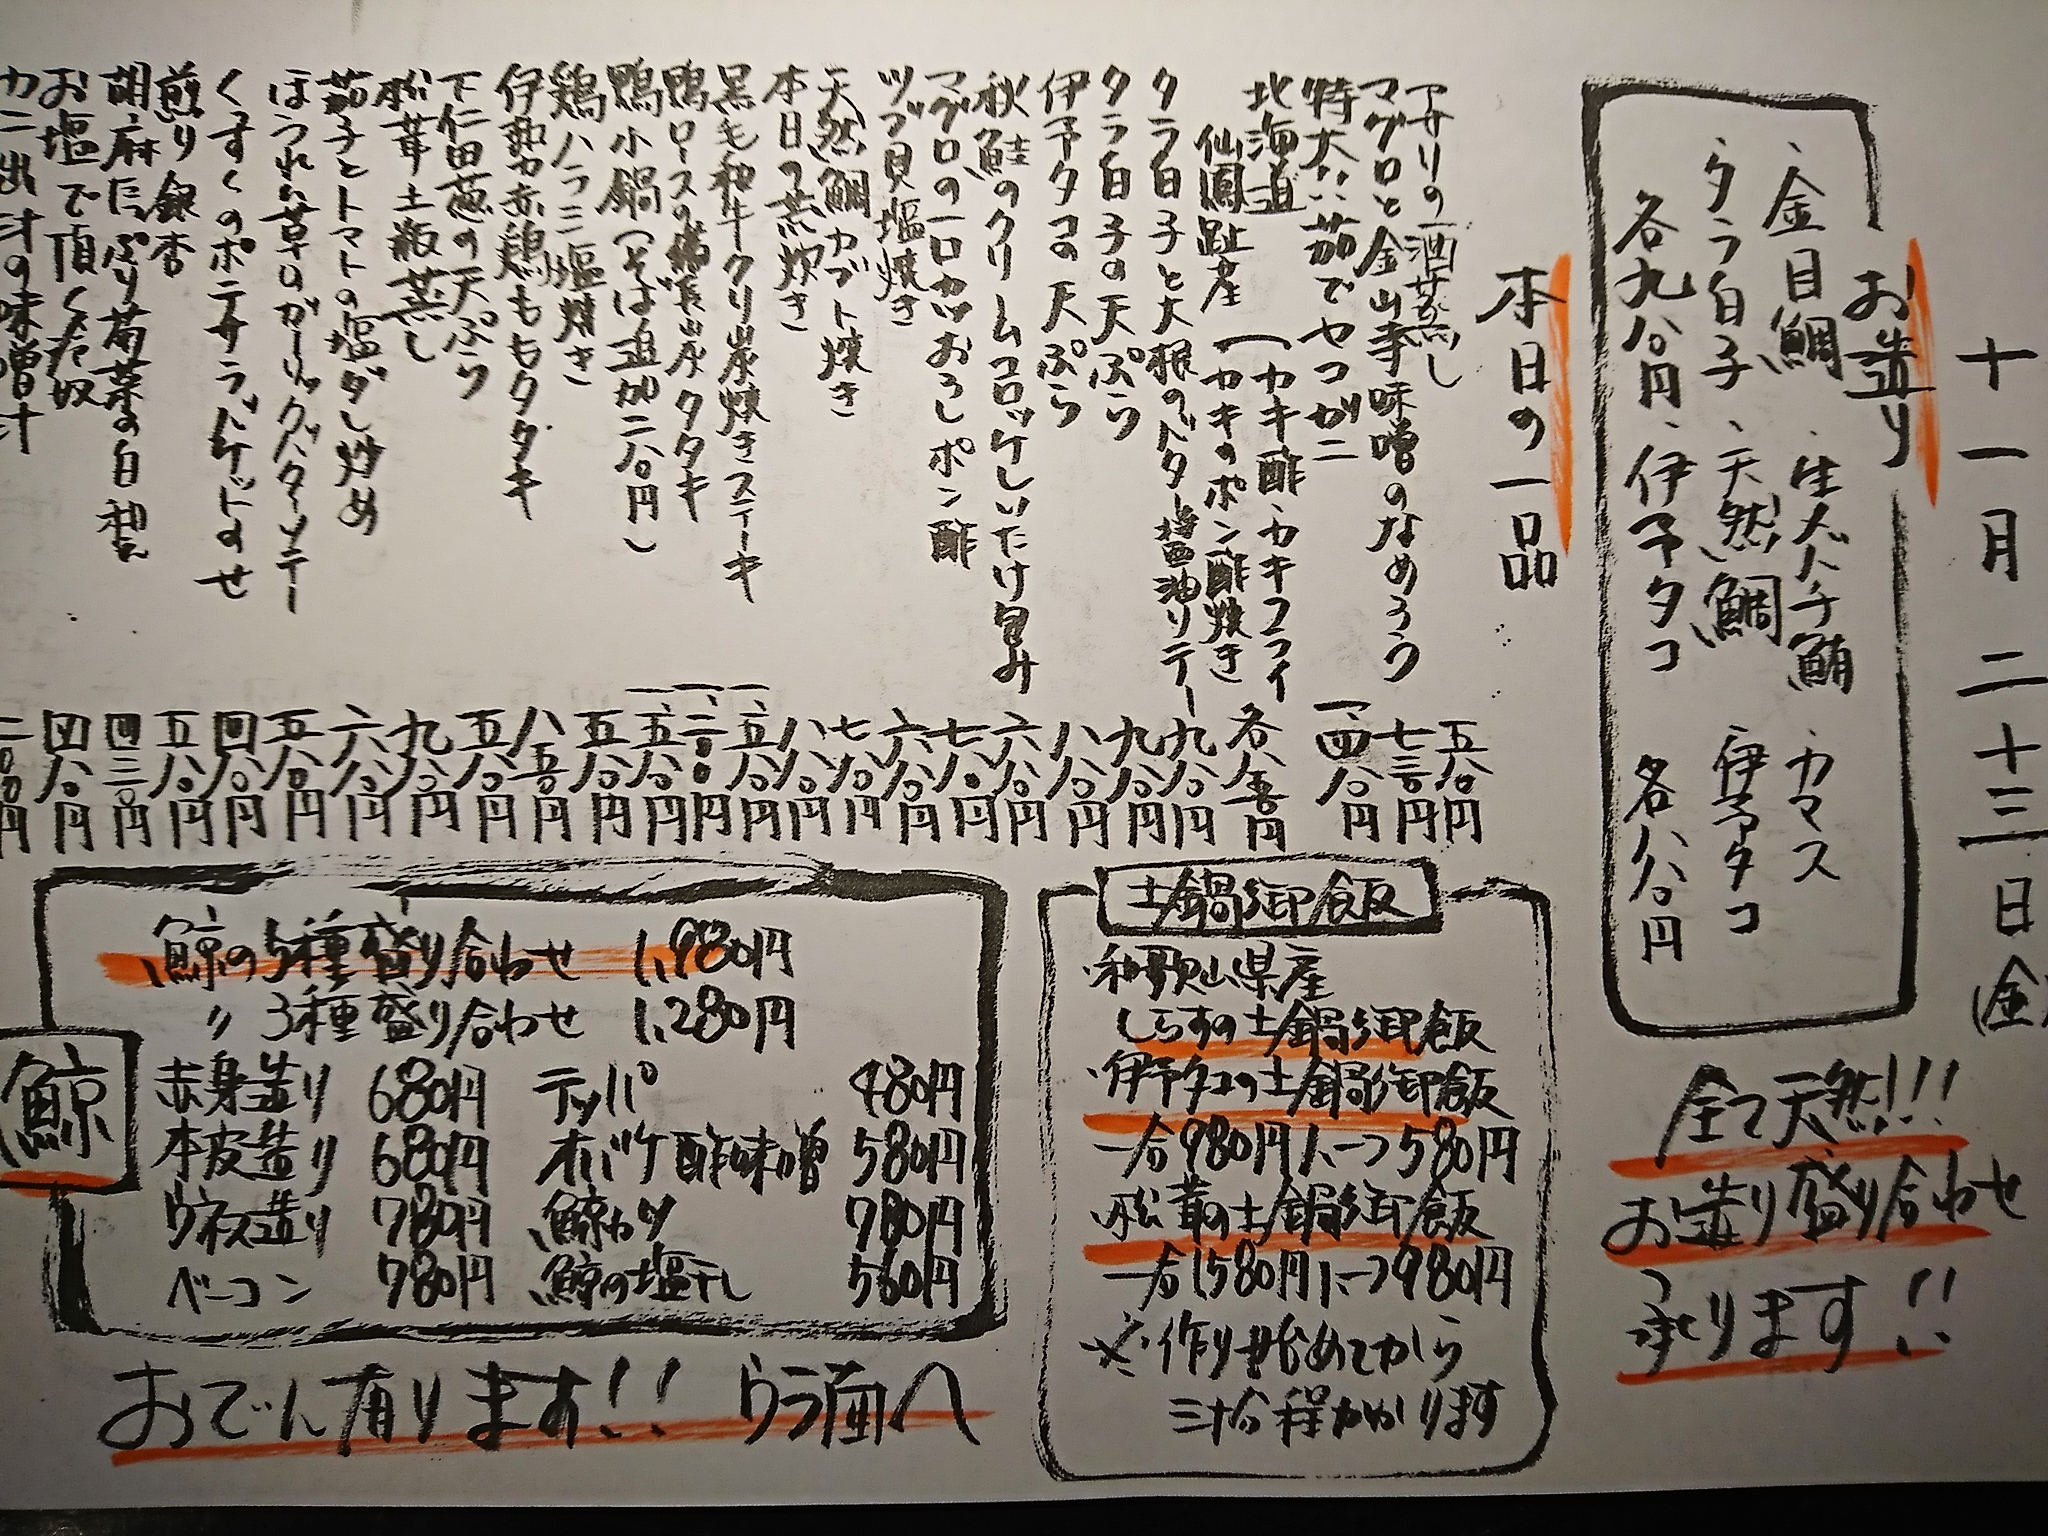 十一月二十三日(金)
お造り
・生メバチ鮪 カマス
・金目鯛
・タラ白子・天然鯛 伊予タコ
各九八〇円・伊予タコ 各八八〇円
全て天然!!!
お造り盛り合わせ
承ります!!
本日の一品
アサリの酒蒸し 五八〇円
マグロと金山寺味噌のなめろう 七三〇円
特大!!茹でセコガニ 一、四八〇円
北海道 (カキ酢・カキフライ
仙鳳趾産 (カキのポン酢焼き 各八五〇円
タラ白子と大根のバター醤油ソテー 九八〇円
タラ白子の天ぷら 九八〇円
伊予タコの天ぷら 八八〇円
秋鮭のクリームコロッケしいたけ包み 六八〇円
マグロの一口カツおろしポン酢 七八〇円
ツブ貝塩焼き 六八〇円
天然鯛カブト焼き 七八〇円
本日の荒炊き 八八〇円
黒毛和牛クリ炭焼きステーキ 一、五八〇円
鴨ロースの備長炭タタキ 一、二〇〇円
鴨小鍋(そば追加二八〇円) 一、五八〇円
鶏ハラミ塩焼き 五八〇円
伊勢赤鶏ももタタキ 八五〇円
下仁田葱の天ぷら 五八〇円
松茸土瓶蒸し 九八〇円
茄子とトマトの塩ダレ炒め 六八〇円
ほうれん草のガーリックバターソテー 五八〇円
くずくのポテサラバケットのせ 四八〇円
煎り銀杏 五八〇円
胡麻たっぷり菊菜の白和え 四三〇円
お塩で頂く冷奴 四八〇円
カニ出汁の味噌汁 二〇〇円
土鍋御飯
・和歌山県産
しらすの土鍋御飯
・伊予タコの土鍋御飯
一合980円ハーフ580円
・松茸の土鍋御飯
一合1580円ハーフ980円
※作り始めてから
三十分程かかります
鯨
鯨の5種盛り合わせ 1,980円
〃 3種盛り合わせ 1,280円
赤身造り 680円 テッパ 480円
本皮造り 680円 オバケ酢味噌 580円
ウネス造り 780円 鯨カツ 780円
ベーコン 780円 鯨の塩干し 560円
おでん有ります!! ウラ面へ